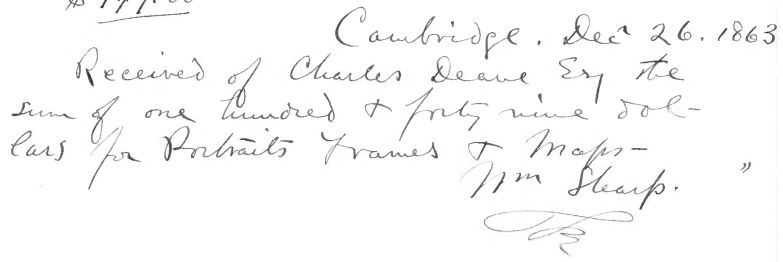 $149.00
Cambridge. Decr 26. 1863
Received of Charles Deane Esq the
sum of one hundred & forty nine dol-
lars for Portraits Frames & Maps-
Wm Sharp. "